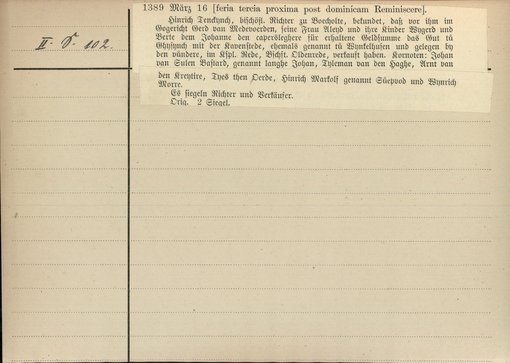 1389 März 16 [feria tercia proxima post dominicam Reminiscere].
Hinrich Tenckynch, bischöfl. Richter zu Borcholte, bekundet, daß vor ihm im
Gogericht Gerd van Medevoerden, seine Frau Aleyd und ihre Kinder Wygerd und
Berte dem Johanne den capersleghere für erhaltene Geldsumme das Gut tů
Ghysynch mit der Kavenstede, ehemals genannt tů Wynkelhusen und gelegen by
den vůndere, im Kspl. Rede, Bschft. Oldenrede, verkauft haben. Kornoten: Johan
van Sulen Bastard, genannt langhe Johan, Tyleman van den Haghe, Arnt van
den Kreytire, Tyes then Oerde, Hinrich Markolf genannt Sůepvod und Wynrich
Morre.
Es siegeln Richter und Verkäufer.
Orig. 2 Siegel.
II. 102.